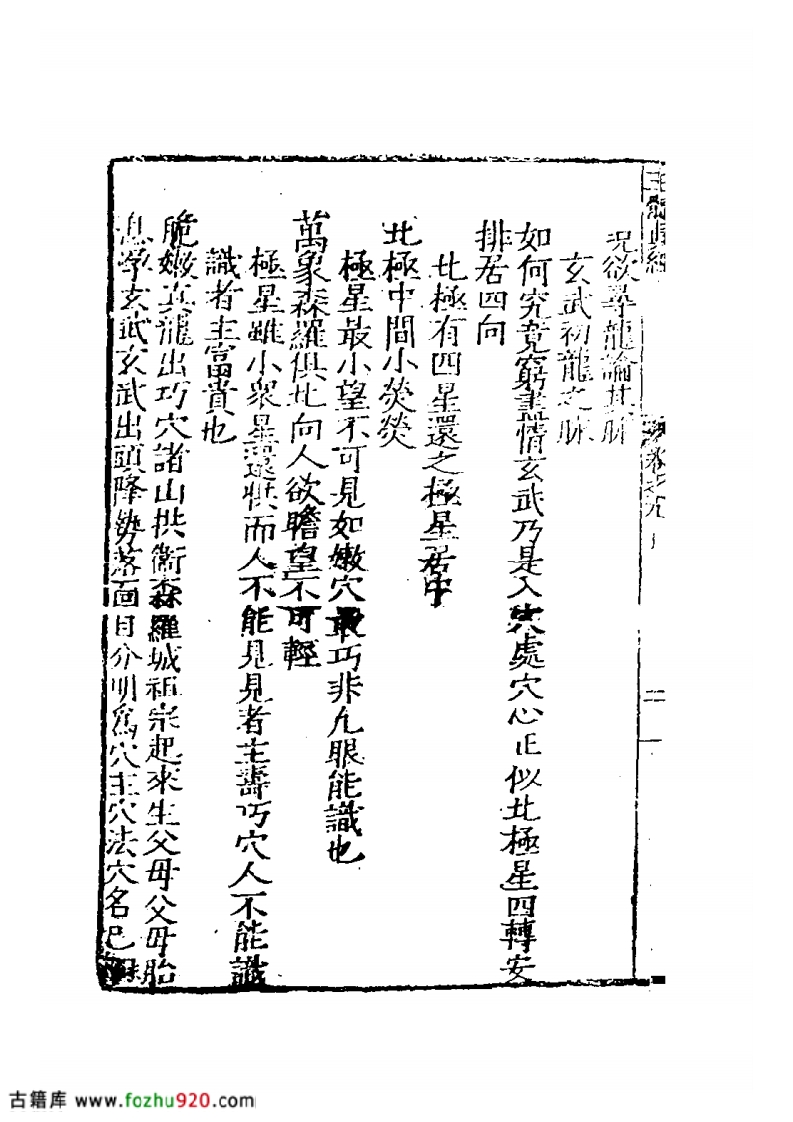 玉髓真經 卷之九 二
況欲尋龍論其脉
玄武初龍之脉
如何究竟窮盡情玄武乃是入穴處穴心正似北極星四轉安
排居四向
北極有四星還之極星居中
北極中間小熒熒
極星最小望不可見如嫩穴最巧非凢眼能識也
萬象森羅俱北向人欲瞻望不可輕
極星雖小衆星還拱而人不能見見者主壽巧穴人不能識
識者主富貴也
脆嫩真龍出巧穴諸山拱衞森羅城祖宗起來生父母父母胎
息孕玄武玄武出頭降勢落面目分明爲穴主穴法穴名已
古籍库 www.fozhu920.com